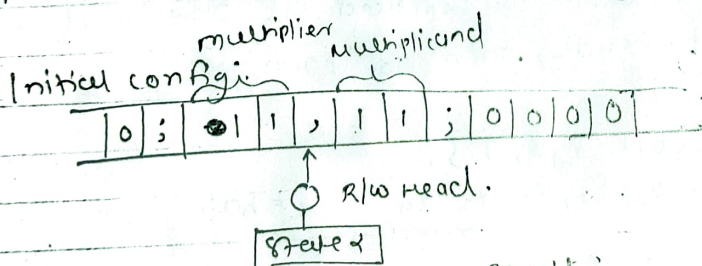 multiplier
Multiplicand
Initial config:
0 ; 1 1 , 1 1 ; 0 0 0 0
R/W Head.
State α